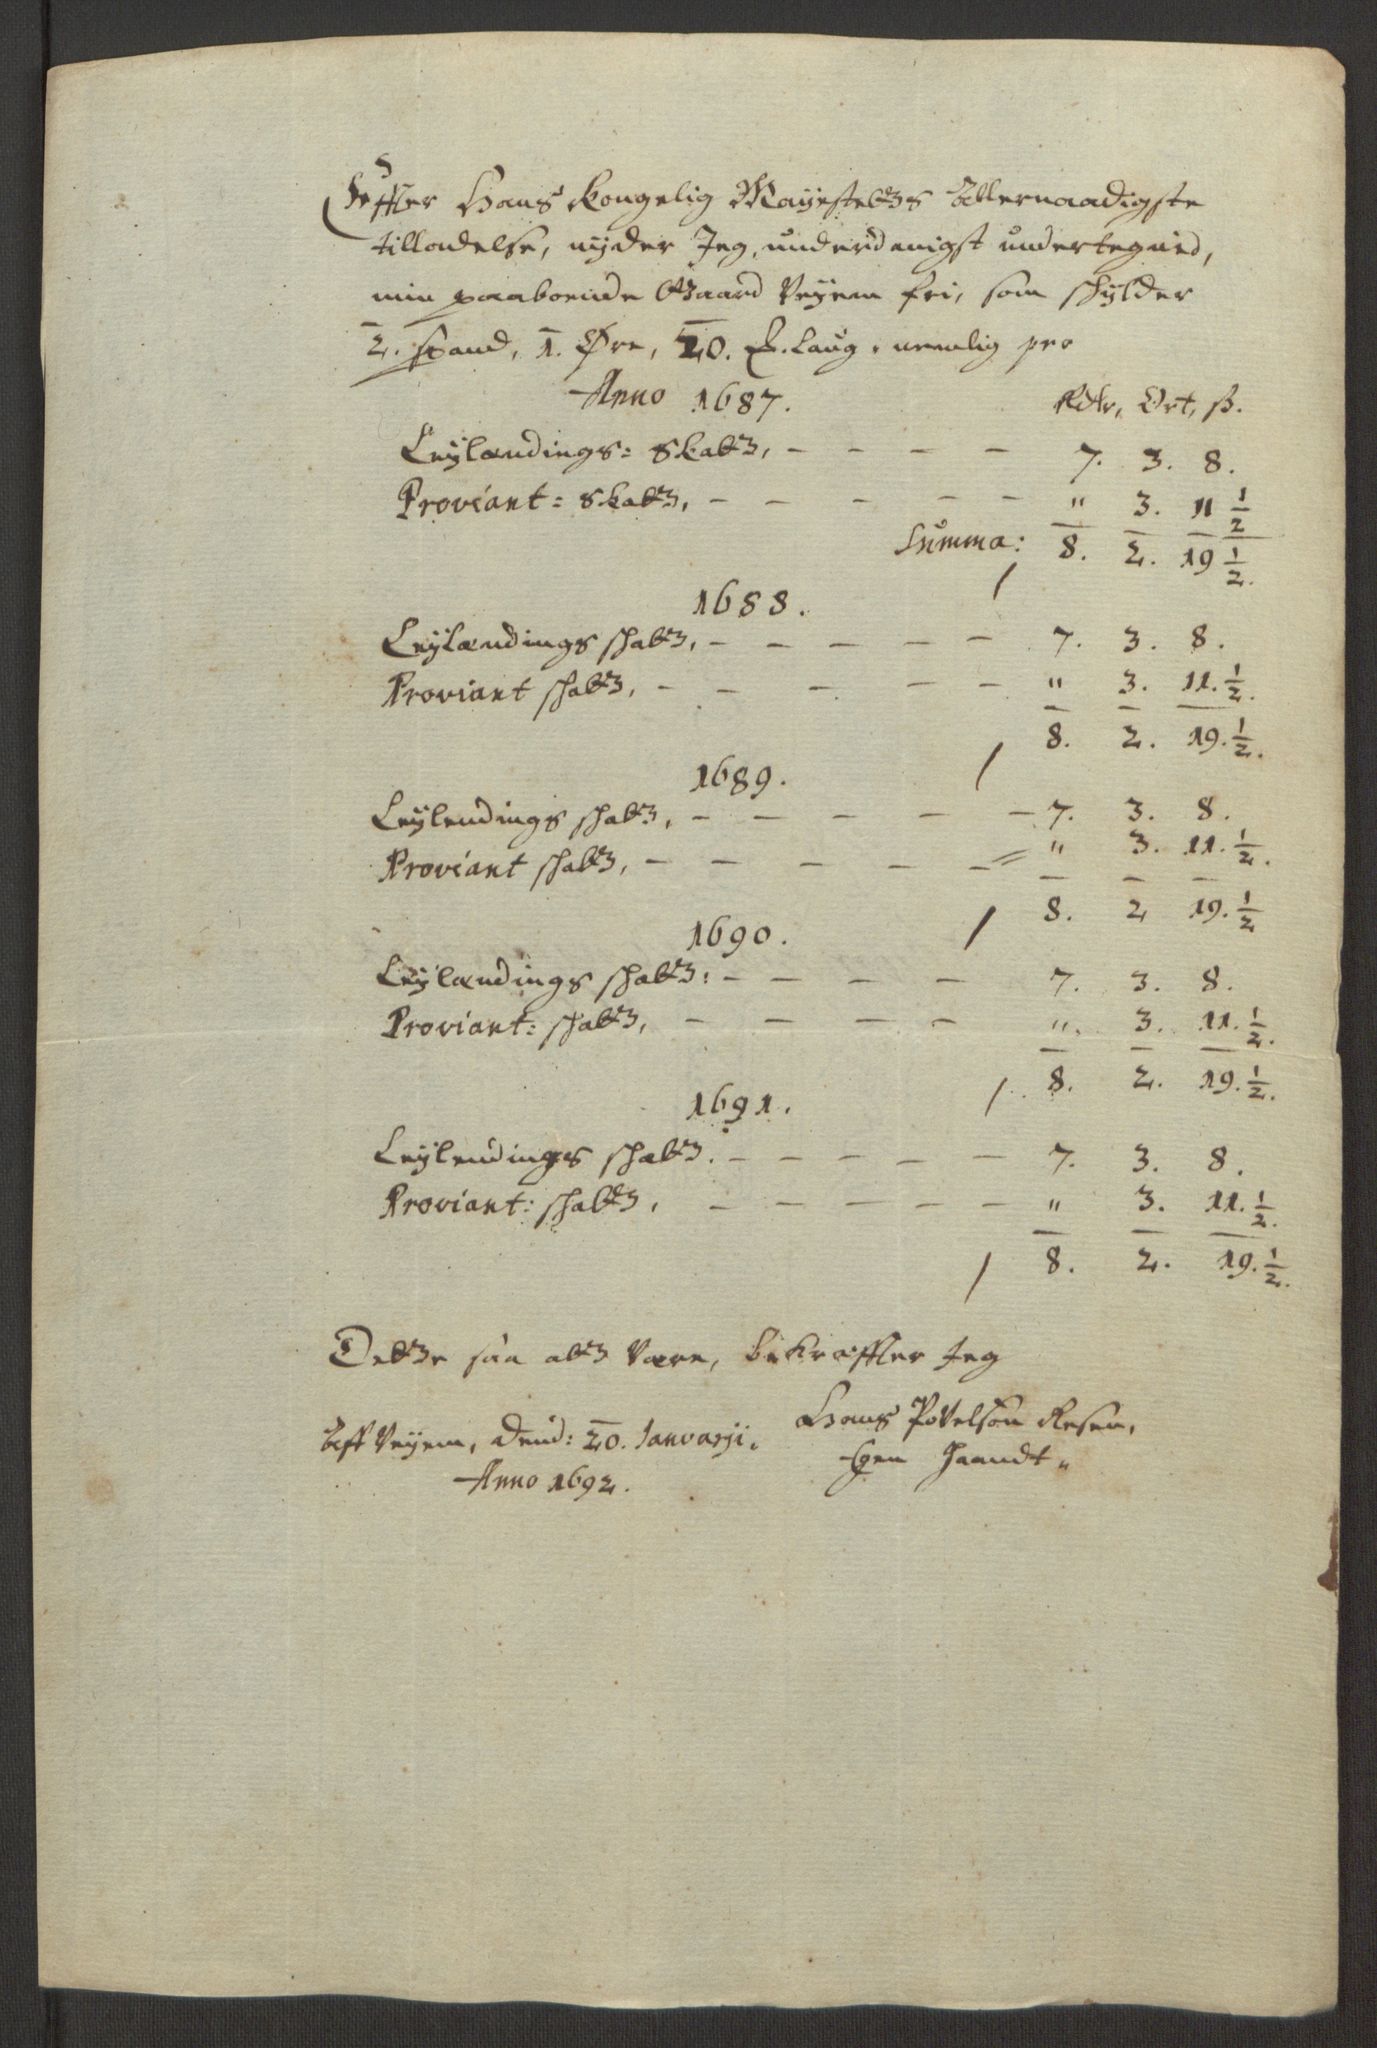 Effter Hans Kongelig Mayestetz Allernaadigste
tilladelse, nÿder Jeg, underdanigst undertegned,
min paaboende Gaard Veÿem fri, som schÿlder
2. spand, 1. Øre, 20. Laug, nemlig pro
Anno 1687. Rdlr, Ort, ß.
Leÿlændings: Skatz, - - - - 7. 3. 8.
Proviant: Skatz, - - - - - " 3. 11 1/2
Summa: 8. 2. 19 1/2.
1688.
Leÿlændings schatz, - - - - - 7. 3. 8.
Proviant schatz, - - - - - " 3. 11. 1/2.
8. 2. 19. 1/2.
1689.
Leÿlendings schatz, - - - - - 7. 3. 8.
Proviant schatz, - - - - - " 3. 11. 1/2.
8. 2 19. 1/2
1690.
Leÿlændings schatz: - - - - 7. 3. 8.
Proviant: schatz, - - - - ". 3. 11. 1/2.
8. 2. 19. 1/2.
1691.
Leÿlendings schatz. - - - - - 7. 3. 8.
Proviant: schatz, - - - - - " 3. 11. 1/2.
8. 2. 19. 1/2.
Detze saa atz være, bekræffter Jeg
Hans Povelsøn Resen,
Aff Veÿem, dend: 20. Janvarÿi.
Egen Haandt "
Anno 1692.